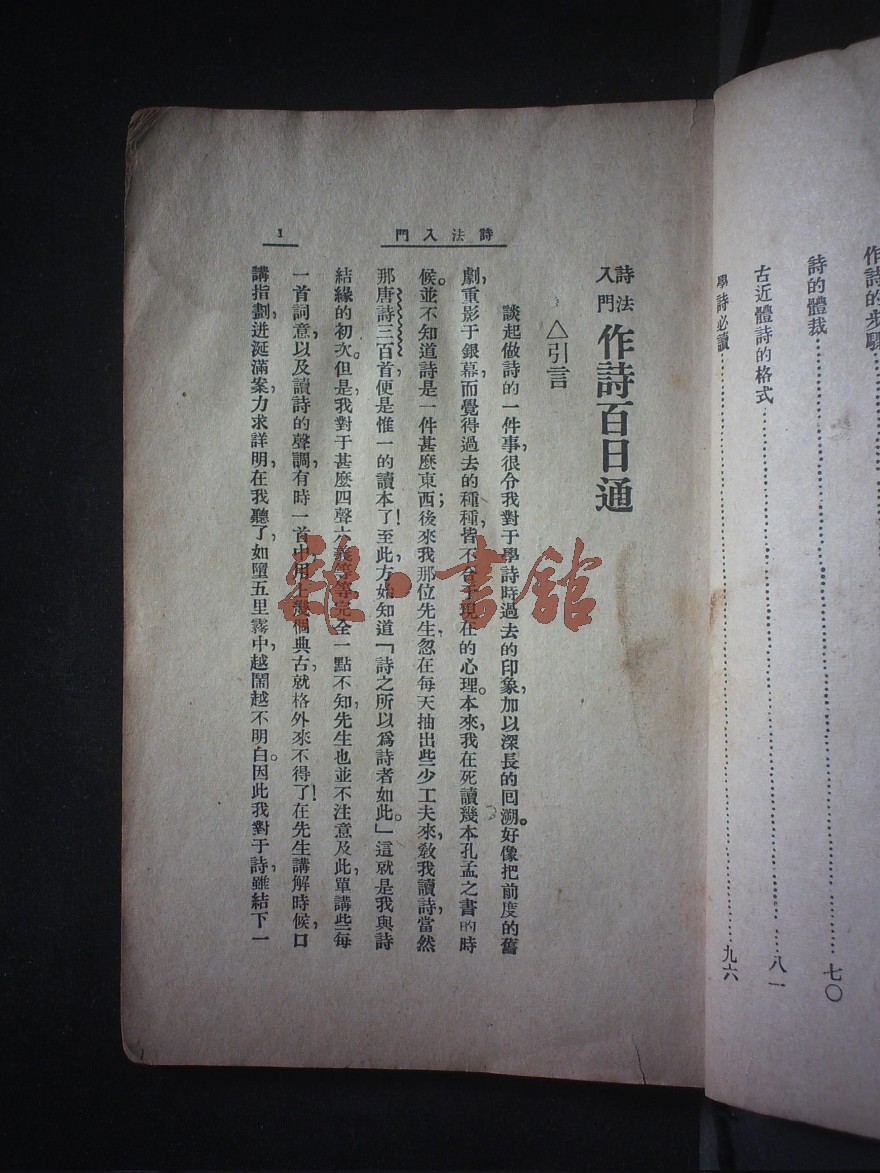 作詩的步驟
詩的體裁……七〇
古近體詩的格式……八一
學詩必讀……九六
詩法入門
1
詩法入門 作詩百日通
△引言
談起做詩的一件事，很令我對于學詩時過去的印象，加以深長的囘溯。好像把前度的舊
劇，重影于銀幕，而覺得過去的種種，皆不合于現在的心理。本來，我在死讀幾本孔孟之書的時
候。並不知道詩是一件甚麽東西；後來我那位先生，忽在每天抽出些少工夫來，敎我讀詩，當然
那唐詩三百首，便是惟一的讀本了！至此，方始知道「詩之所以爲詩者如此。」這就是我與詩
結緣的初次。但是，我對于甚麽四聲六義等等，完全一點不知，先生也並不注意及此，單講些每
一首詞意，以及讀詩的聲調，有時一首中用上幾個典古，就格外來不得了！在先生講解時候，口
講指劃，迸涎滿案，力求詳明，在我聽了，如墮五里霧中，越鬧越不明白。因此我對于詩，雖結下一
雜·書館